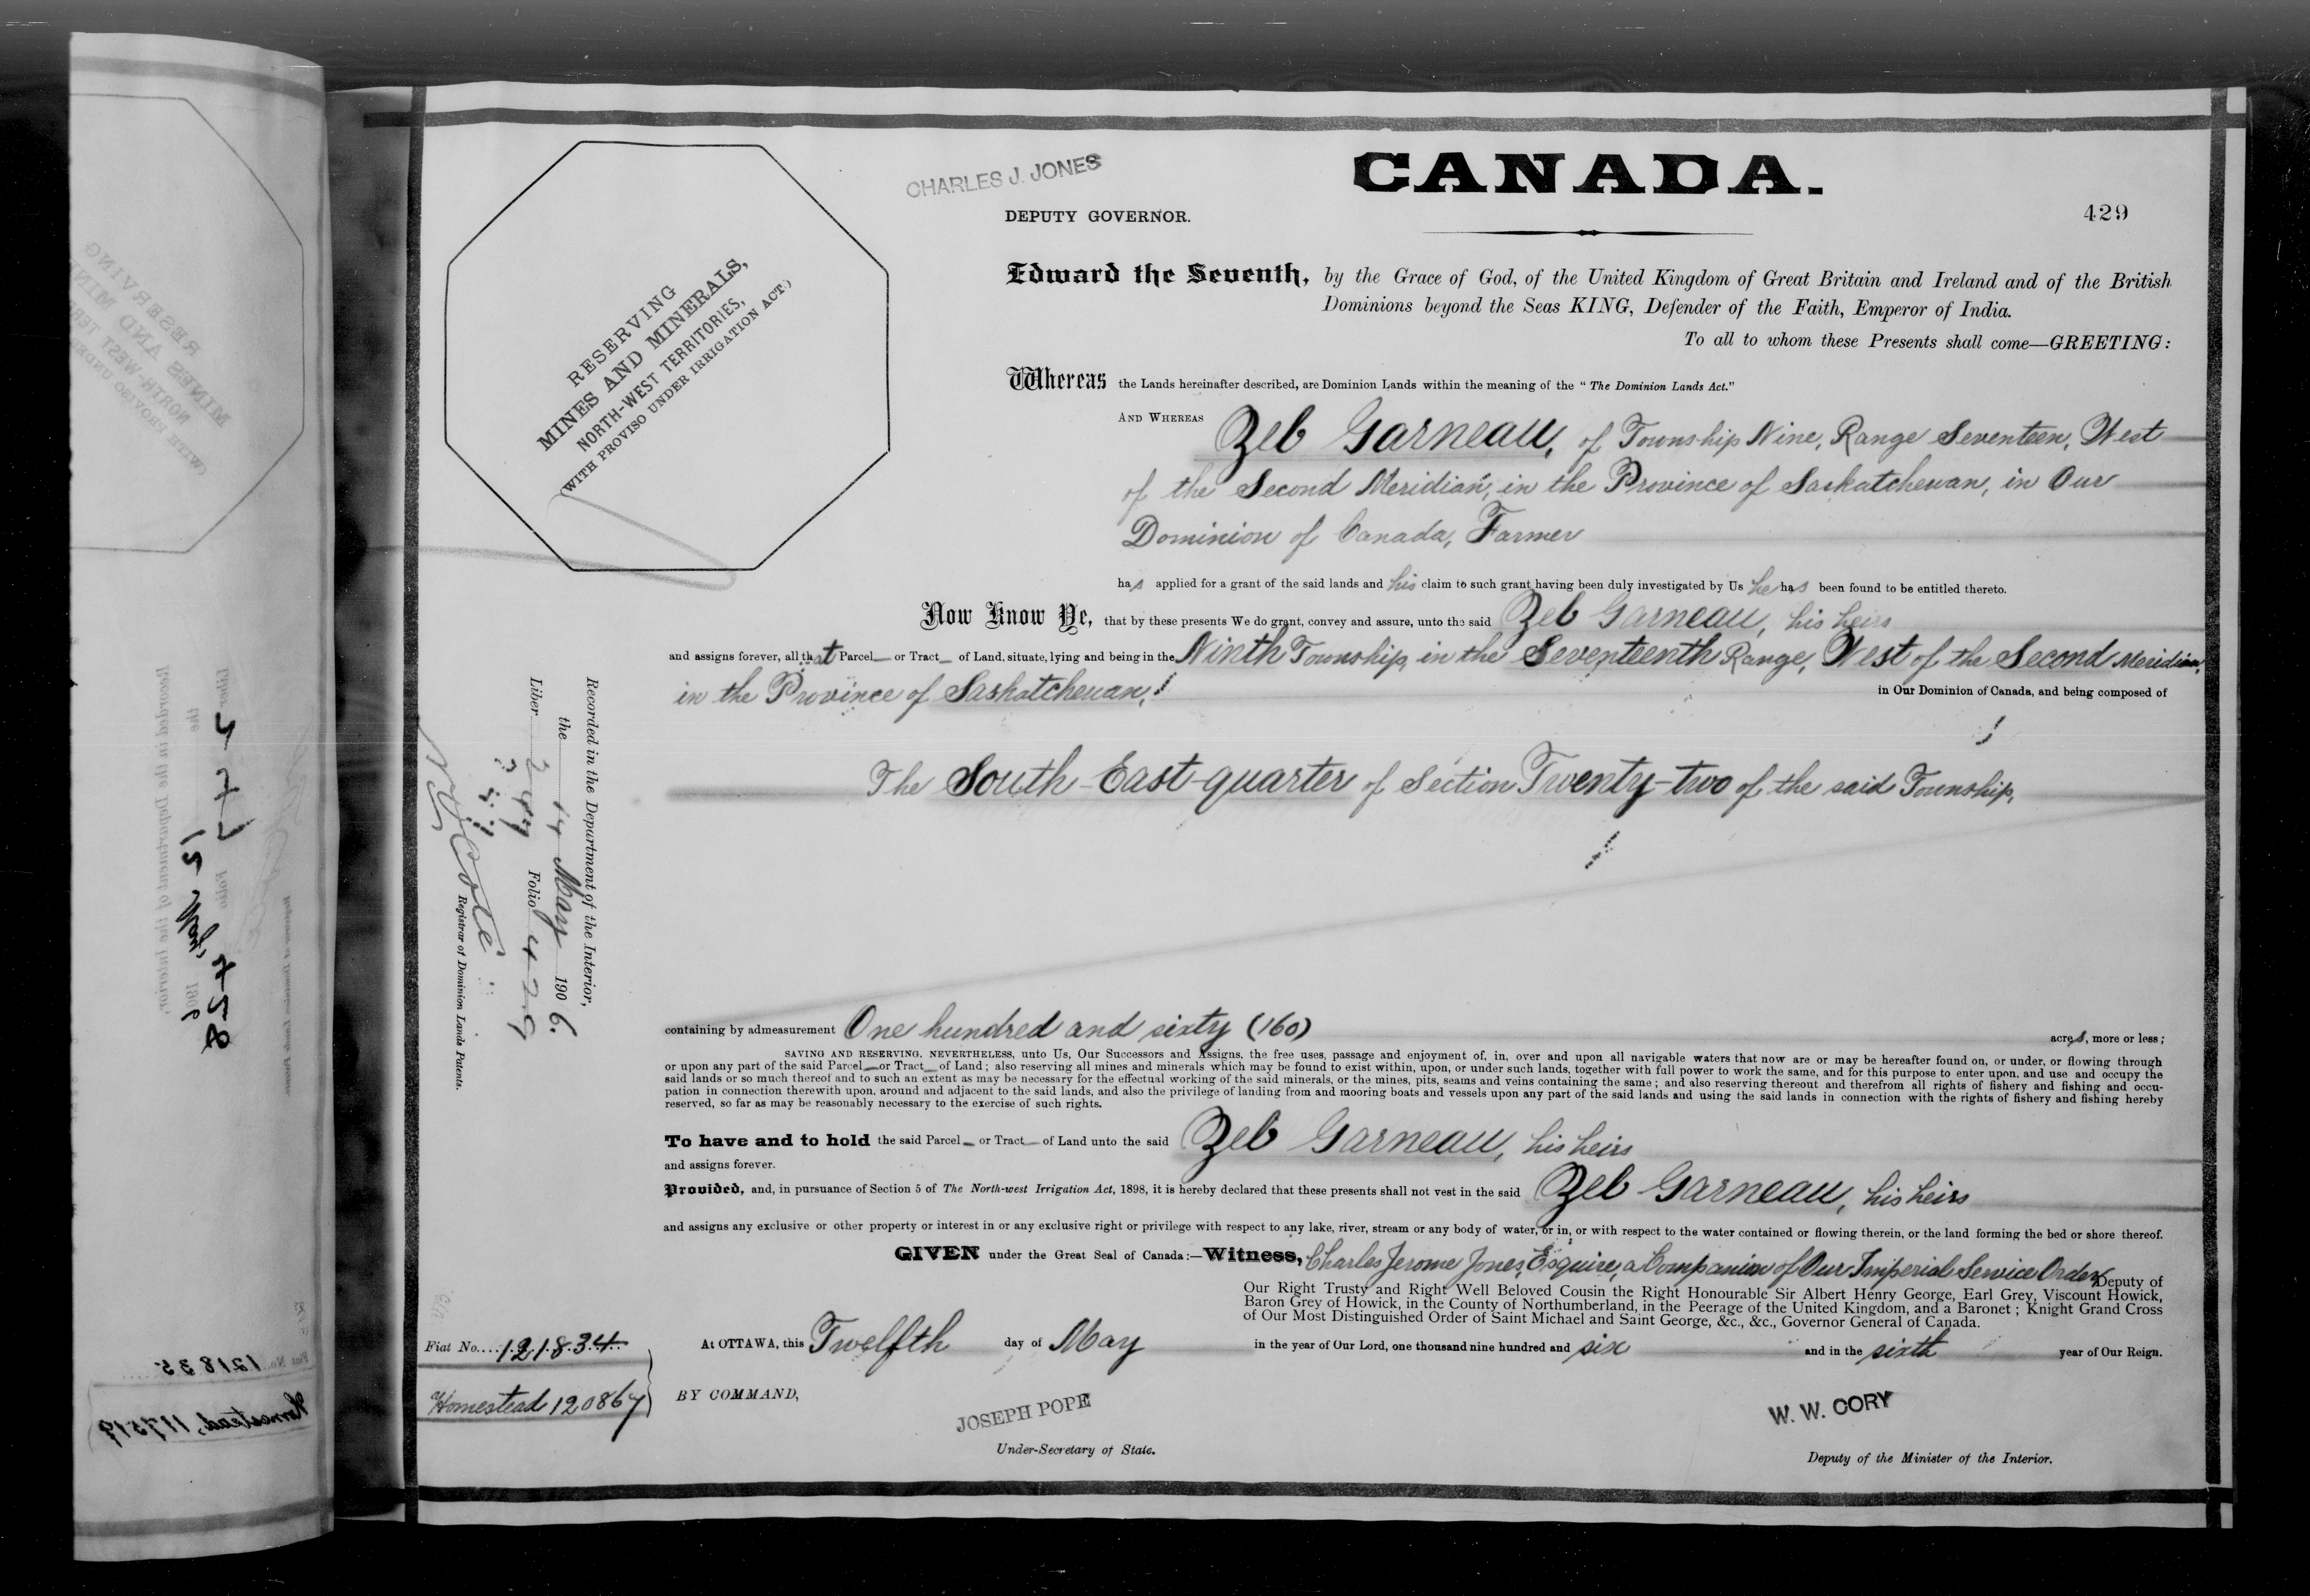 CHARLES J. JONES
CANADA.
DEPUTY GOVERNOR.
429
RESERVING
MINES AND MINERALS,
NORTH-WEST TERRITORIES,
(WITH PROVISO UNDER IRRIGATION ACT.)
Edward the Seventh, by the Grace of God, of the United Kingdom of Great Britain and Ireland and of the British
Dominions beyond the Seas KING, Defender of the Faith, Emperor of India.
To all to whom these Presents shall come—GREETING:
Whereas the Lands hereinafter described, are Dominion Lands within the meaning of the "The Dominion Lands Act."
AND WHEREAS Zeb Garneau, of Township Nine, Range Seventeen, West
of the Second Meridian, in the Province of Saskatchewan, in Our
Dominion of Canada, Farmer
has applied for a grant of the said lands and his claim to such grant having been duly investigated by Us he has been found to be entitled thereto.
Now Know Ye, that by these presents We do grant, convey and assure, unto the said Zeb Garneau, his heirs
and assigns forever, all that Parcel or Tract of Land, situate, lying and being in the Ninth Township, in the Seventeenth Range, West of the Second Meridian,
in the Province of Saskatchewan, in Our Dominion of Canada, and being composed of
The South-East-quarter of Section Twenty-two of the said Township,
Recorded in the Department of the Interior,
the 14 May 1906.
Liber Folio 429
Registrar of Dominion Lands Patents.
containing by admeasurement One hundred and sixty (160) acres, more or less;
SAVING AND RESERVING, NEVERTHELESS, unto Us, Our Successors and Assigns, the free uses, passage and enjoyment of, in, over and upon all navigable waters that now are or may be hereafter found on, or under, or flowing through
or upon any part of the said Parcel or Tract of Land; also reserving all mines and minerals which may be found to exist within, upon, or under such lands, together with full power to work the same, and for this purpose to enter upon, and use and occupy the
said lands or so much thereof and to such an extent as may be necessary for the effectual working of the said minerals, or the mines, pits, seams and veins containing the same; and also reserving thereout and therefrom all rights of fishery and fishing and occu-
pation in connection therewith upon, around and adjacent to the said lands, and also the privilege of landing from and mooring boats and vessels upon any part of the said lands and using the said lands in connection with the rights of fishery and fishing hereby
reserved, so far as may be reasonably necessary to the exercise of such rights.
To have and to hold the said Parcel or Tract of Land unto the said Zeb Garneau, his heirs
and assigns forever.
Provided, and, in pursuance of Section 5 of The North-west Irrigation Act, 1898, it is hereby declared that these presents shall not vest in the said Zeb Garneau, his heirs
and assigns any exclusive or other property or interest in or any exclusive right or privilege with respect to any lake, river, stream or any body of water, or in, or with respect to the water contained or flowing therein, or the land forming the bed or shore thereof.
GIVEN under the Great Seal of Canada:—Witness, Charles Jerome Jones, Esquire, a Companion of Our Imperial Service Order, Deputy of
Our Right Trusty and Right Well Beloved Cousin the Right Honourable Sir Albert Henry George, Earl Grey, Viscount Howick,
Baron Grey of Howick, in the County of Northumberland, in the Peerage of the United Kingdom, and a Baronet; Knight Grand Cross
of Our Most Distinguished Order of Saint Michael and Saint George, &c., &c., Governor General of Canada.
At OTTAWA, this Twelfth day of May in the year of Our Lord, one thousand nine hundred and six and in the sixth year of Our Reign.
Fiat No. 121834
Homestead 120867
BY COMMAND,
JOSEPH POPE
Under-Secretary of State.
W. W. CORY
Deputy of the Minister of the Interior.